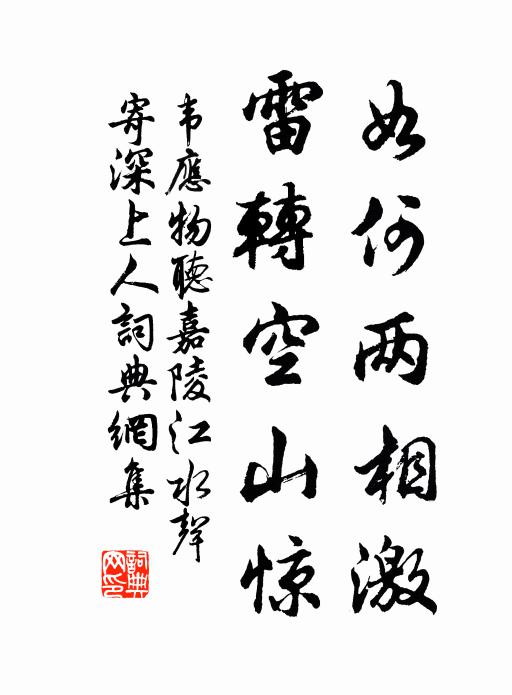 如何两相激
雷轉空山惊
韦應物聽嘉陵江水聲
寄深上人詞典網集
詞典
网印